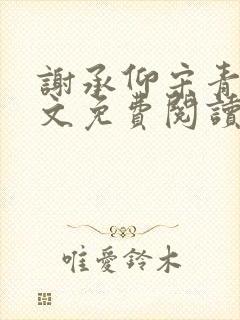 謝承仰宋青
文免費閱讀
唯愛鈴木